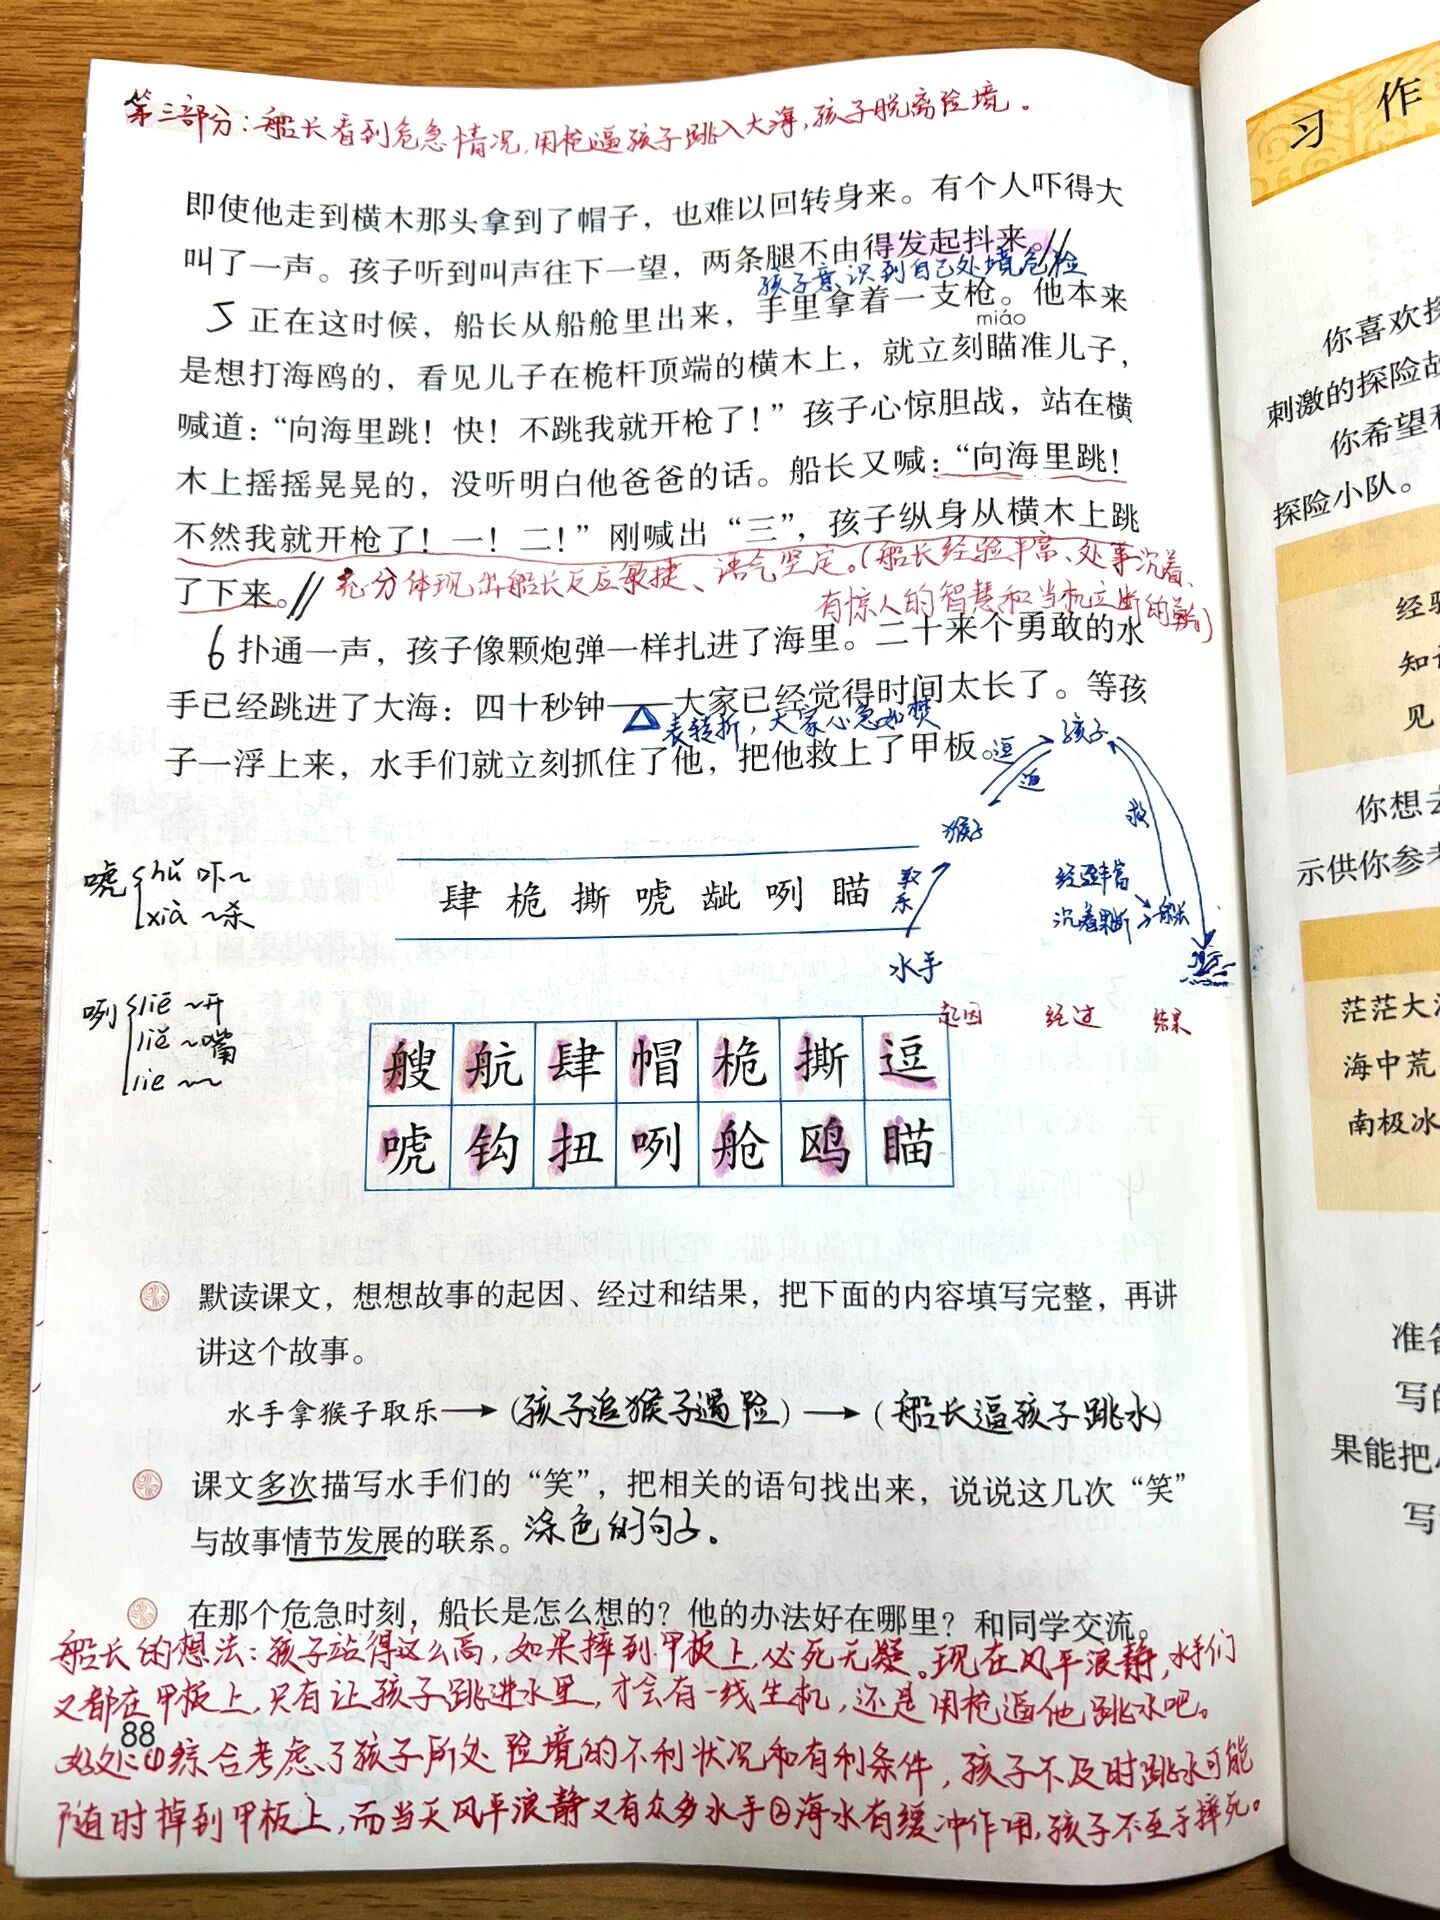 第三部分：船长看到危急情况，用枪逼孩子跳入大海，孩子脱离险境。
即使他走到横木那头拿到了帽子，也难以回转身来。有个人吓得大
叫了一声。孩子听到叫声往下一望，两条腿不由得发起抖来。//
孩子意识到自己处境危险
5 正在这时候，船长从船舱里出来，手里拿着一支枪。他本来
miáo
是想打海鸥的，看见儿子在桅杆顶端的横木上，就立刻瞄准儿子，
喊道：“向海里跳！快！不跳我就开枪了！”孩子心惊胆战，站在横
木上摇摇晃晃的，没听明白他爸爸的话。船长又喊：“向海里跳！
不然我就开枪了！一！二！”刚喊出“三”，孩子纵身从横木上跳
了下来。//
充分体现出船长反应敏捷、语气坚定。(船长经验丰富、处事沉着、
有惊人的智慧和当机立断的
6 扑通一声，孩子像颗炮弹一样扎进了海里。二十来个勇敢的水
手已经跳进了大海：四十秒钟——大家已经觉得时间太长了。等孩
表转折，大家心急如焚
子一浮上来，水手们就立刻抓住了他，把他救上了甲板。
孩子
逗
追
猴子
救
取乐
水手
经验丰富
沉着果断
船长
唬 hǔ 吓～
xià ～杀
肆 桅 撕 唬 龇 咧 瞄
咧 liē ～开
liě ～嘴
lie ～～
起因 经过 结果
艘 航 肆 帽 桅 撕 逗
唬 钩 扭 咧 舱 鸥 瞄
默读课文，想想故事的起因、经过和结果，把下面的内容填写完整，再讲
讲这个故事。
水手拿猴子取乐→(孩子追猴子遇险)→(船长逼孩子跳水)
课文多次描写水手们的“笑”，把相关的语句找出来，说说这几次“笑”
与故事情节发展的联系。涂色的句子。
在那个危急时刻，船长是怎么想的？他的办法好在哪里？和同学交流。
船长的想法：孩子站得这么高，如果摔到甲板上，必死无疑。现在风平浪静，水手们
又都在甲板上，只有让孩子跳进水里，才会有一线生机，还是用枪逼他跳水吧。
88
好处：①综合考虑了孩子所处险境的不利状况和有利条件，孩子不及时跳水可能
随时掉到甲板上，而当天风平浪静又有众多水手②海水有缓冲作用，孩子不至于摔死。
习 作
你喜欢探
刺激的探险故
你希望和
探险小队。
经验
知识
见
你想去
示供你参考
茫茫大海
海中荒
南极冰
准备
写的
果能把
写